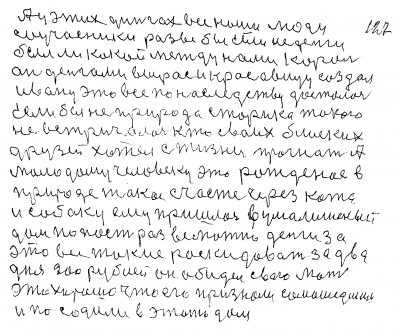 127
А у этих дингах все ноши люди
случасники разве бы сти не денги
были какой между ноши Корил
он денгами вырас и красавицу создал
Ивану это все по наследству досталос
Если бы не природа старика такого
не встричался кто своих близких
друзей хотел с тизни прогнат А
молодому человеку это рожденое в
природе такое счасте через кота
и собаку ему пришлос в умалишоный
дом попост развепотит денги за
это вы такие раскидоват за два
дня 300 рублей он обидел свою мат
Это хорошо что его признали сомашедшим
и посодили в этот дом